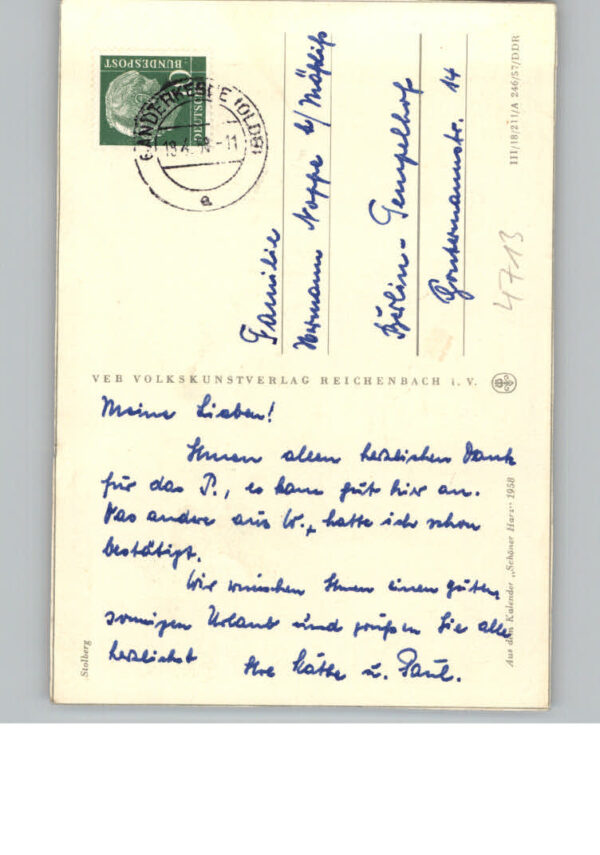 BUNDESPOST
GANDERKESEE (OLDB)
a
Familie
Hermann Noppe b/ Mätzliss
Berlin-Tempelhof
Gontermannstr. 14
III/18/211/A 246/57/DDR
4713
VEB VOLKSKUNSTVERLAG REICHENBACH i. V.
Meine Lieben!
Ihnen allen herzlichen Dank
für das P., es kam gut hier an.
Das andre aus W., hatte ich schon
bestätigt.
Wir wünschen Ihnen einen guten,
sonnigen Urlaub und grüßen Sie alle
herzlichst Ihre Käthe u. Paul.
Stolberg
Aus dem Kalender „Schöner Harz" 1958